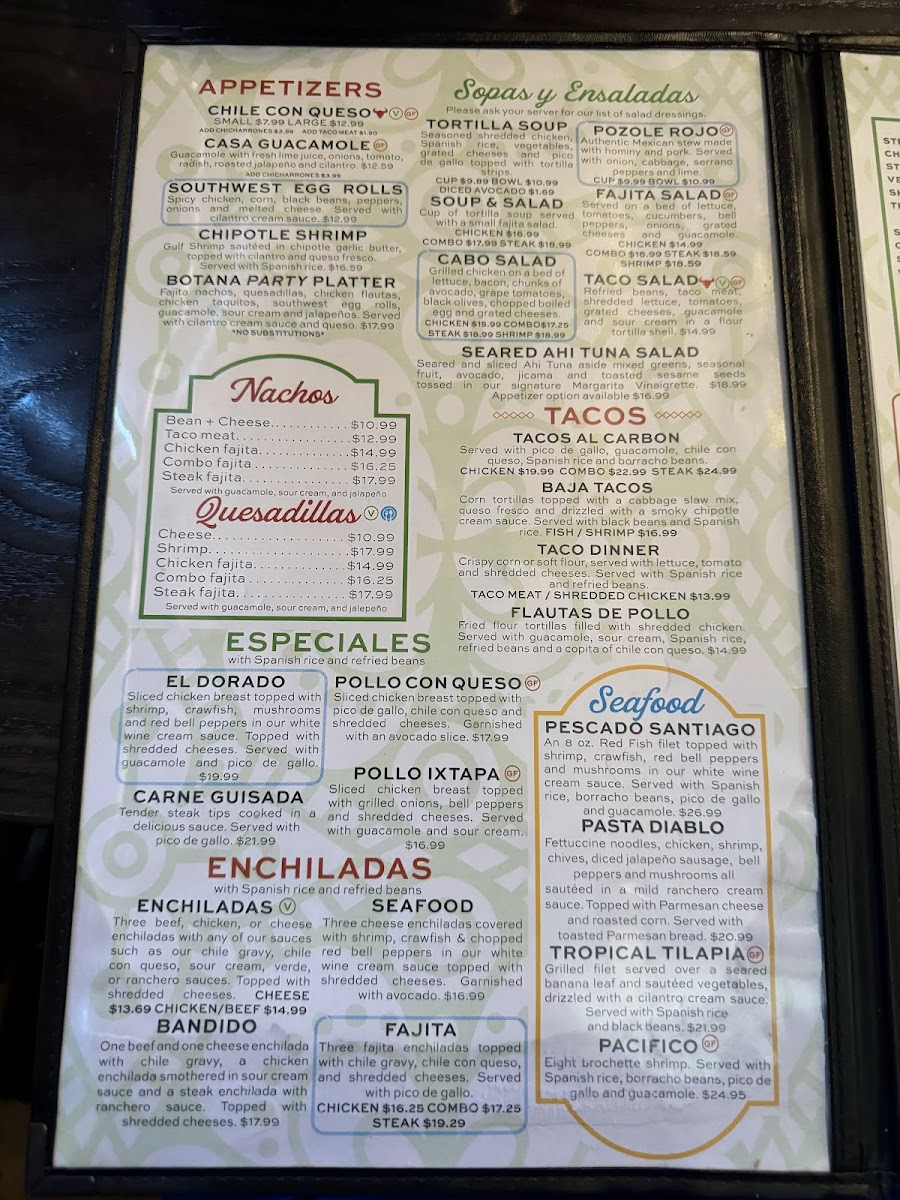 APPETIZERS
CHILE CON QUESO V GF
SMALL $7.99 LARGE $12.99
ADD CHICHARRONES $3.99 ADD TACO MEAT $1.90
CASA GUACAMOLE GF
Guacamole with fresh lime juice, onions, tomato,
radish, roasted jalapeño and cilantro. $12.59
ADD CHICHARRONES $3.99
SOUTHWEST EGG ROLLS
Spicy chicken, corn, black beans, peppers,
onions and melted cheese. Served with
cilantro cream sauce. $12.99
CHIPOTLE SHRIMP
Gulf Shrimp sautéed in chipotle garlic butter,
topped with cilantro and queso fresco.
Served with Spanish rice. $16.59
BOTANA PARTY PLATTER
Fajita nachos, quesadillas, chicken flautas,
chicken taquitos, southwest egg rolls,
guacamole, sour cream and jalapeños. Served
with cilantro cream sauce and queso. $17.99
*NO SUBSTITUTIONS*
Nachos
Bean + Cheese............ $10.99
Taco meat................. $12.99
Chicken fajita.............. $14.99
Combo fajita.............. $16.25
Steak fajita................ $17.99
Served with guacamole, sour cream, and jalapeño
Quesadillas V
Cheese...................... $10.99
Shrimp...................... $17.99
Chicken fajita.............. $14.99
Combo fajita.............. $16.25
Steak fajita................ $17.99
Served with guacamole, sour cream, and jalapeño
ESPECIALES
with Spanish rice and refried beans
EL DORADO
Sliced chicken breast topped with
shrimp, crawfish, mushrooms
and red bell peppers in our white
wine cream sauce. Topped with
shredded cheeses. Served with
guacamole and pico de gallo.
$19.99
CARNE GUISADA
Tender steak tips cooked in a
delicious sauce. Served with
pico de gallo. $21.99
POLLO CON QUESO GF
Sliced chicken breast topped with
pico de gallo, chile con queso and
shredded cheeses. Garnished
with an avocado slice. $17.99
POLLO IXTAPA GF
Sliced chicken breast topped
with grilled onions, bell peppers
and shredded cheeses. Served
with guacamole and sour cream.
$16.99
ENCHILADAS
with Spanish rice and refried beans
ENCHILADAS V
Three beef, chicken, or cheese
enchiladas with any of our sauces
such as our chile gravy, chile
con queso, sour cream, verde,
or ranchero sauces. Topped with
shredded cheeses. CHEESE
$13.69 CHICKEN/BEEF $14.99
BANDIDO
One beef and one cheese enchilada
with chile gravy, a chicken
enchilada smothered in sour cream
sauce and a steak enchilada with
ranchero sauce. Topped with
shredded cheeses. $17.99
SEAFOOD
Three cheese enchiladas covered
with shrimp, crawfish & chopped
red bell peppers in our white
wine cream sauce topped with
shredded cheeses. Garnished
with avocado. $16.99
FAJITA
Three fajita enchiladas topped
with chile gravy, chile con queso,
and shredded cheeses. Served
with pico de gallo.
CHICKEN $16.25 COMBO $17.25
STEAK $19.29
Sopas y Ensaladas
Please ask your server for our list of salad dressings.
TORTILLA SOUP
Seasoned shredded chicken,
Spanish rice, vegetables,
grated cheeses and pico
de gallo topped with tortilla
strips.
CUP $9.89 BOWL $10.99
DICED AVOCADO $1.69
SOUP & SALAD
Cup of tortilla soup served
with a small fajita salad.
CHICKEN $16.99
COMBO $17.99 STEAK $18.99
CABO SALAD
Grilled chicken on a bed of
lettuce, bacon, chunks of
avocado, grape tomatoes,
black olives, chopped boiled
egg and grated cheeses.
CHICKEN $15.99 COMBO $17.25
STEAK $18.99 SHRIMP $18.99
POZOLE ROJO GF
Authentic Mexican stew made
with hominy and pork. Served
with onion, cabbage, serrano
peppers and lime.
CUP $9.99 BOWL $10.99
FAJITA SALAD GF
Served on a bed of lettuce,
tomatoes, cucumbers, bell
peppers, onions, grated
cheeses and guacamole.
CHICKEN $14.99
COMBO $16.99 STEAK $18.59
SHRIMP $18.59
TACO SALAD V GF
Refried beans, taco meat,
shredded lettuce, tomatoes,
grated cheeses, guacamole
and sour cream in a flour
tortilla shell. $14.99
SEARED AHI TUNA SALAD
Seared and sliced Ahi Tuna aside mixed greens, seasonal
fruit, avocado, jicama and toasted sesame seeds
tossed in our signature Margarita Vinaigrette. $18.99
Appetizer option available $16.99
TACOS
TACOS AL CARBON
Served with pico de gallo, guacamole, chile con
queso, Spanish rice and borracho beans.
CHICKEN $19.99 COMBO $22.99 STEAK $24.99
BAJA TACOS
Corn tortillas topped with a cabbage slaw mix,
queso fresco and drizzled with a smoky chipotle
cream sauce. Served with black beans and Spanish
rice. FISH / SHRIMP $16.99
TACO DINNER
Crispy corn or soft flour, served with lettuce, tomato
and shredded cheeses. Served with Spanish rice
and refried beans.
TACO MEAT / SHREDDED CHICKEN $13.99
FLAUTAS DE POLLO
Fried flour tortillas filled with shredded chicken.
Served with guacamole, sour cream, Spanish rice,
refried beans and a copita of chile con queso. $14.99
Seafood
PESCADO SANTIAGO
An 8 oz. Red Fish filet topped with
shrimp, crawfish, red bell peppers
and mushrooms in our white wine
cream sauce. Served with Spanish
rice, borracho beans, pico de gallo
and guacamole. $26.99
PASTA DIABLO
Fettuccine noodles, chicken, shrimp,
chives, diced jalapeño sausage, bell
peppers and mushrooms all
sautéed in a mild ranchero cream
sauce. Topped with Parmesan cheese
and roasted corn. Served with
toasted Parmesan bread. $20.99
TROPICAL TILAPIA GF
Grilled filet served over a seared
banana leaf and sautéed vegetables,
drizzled with a cilantro cream sauce.
Served with Spanish rice
and black beans. $21.99
PACIFICO GF
Eight brochette shrimp. Served with
Spanish rice, borracho beans, pico de
gallo and guacamole. $24.95